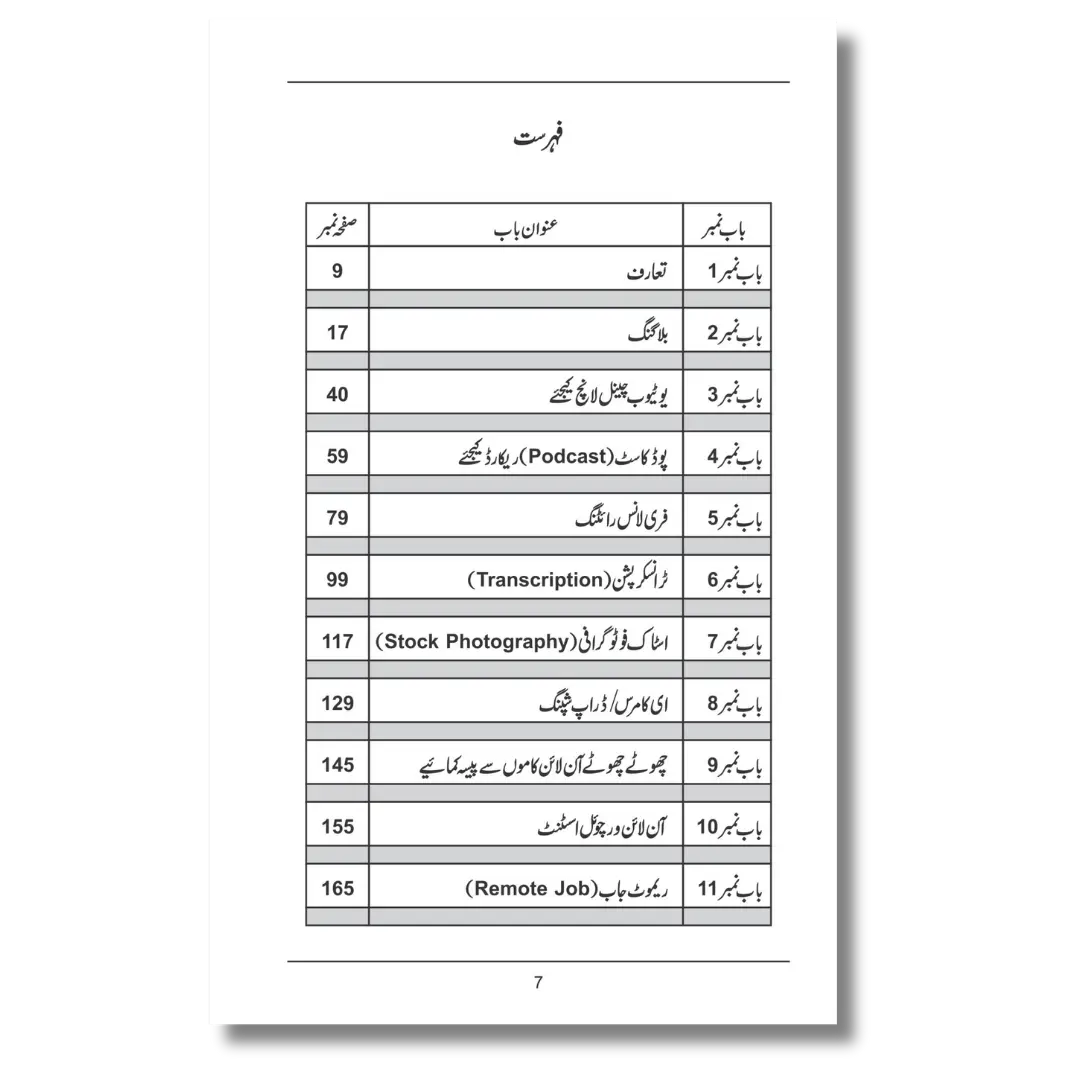 فہرست
باب نمبر عنوان باب صفحہ نمبر
باب نمبر 1 تعارف 9
باب نمبر 2 بلاگنگ 17
باب نمبر 3 یوٹیوب چینل لانچ کیجئے 40
باب نمبر 4 پوڈ کاسٹ (Podcast) ریکارڈ کیجئے 59
باب نمبر 5 فری لانس رائٹنگ 79
باب نمبر 6 ٹرانسکرپشن (Transcription) 99
باب نمبر 7 اسٹاک فوٹوگرافی (Stock Photography) 117
باب نمبر 8 ای کامرس / ڈراپ شپنگ 129
باب نمبر 9 چھوٹے چھوٹے آن لائن کاموں سے پیسہ کمائیے 145
باب نمبر 10 آن لائن ورچوئل اسٹنٹ 155
باب نمبر 11 ریموٹ جاب (Remote Job) 165
7